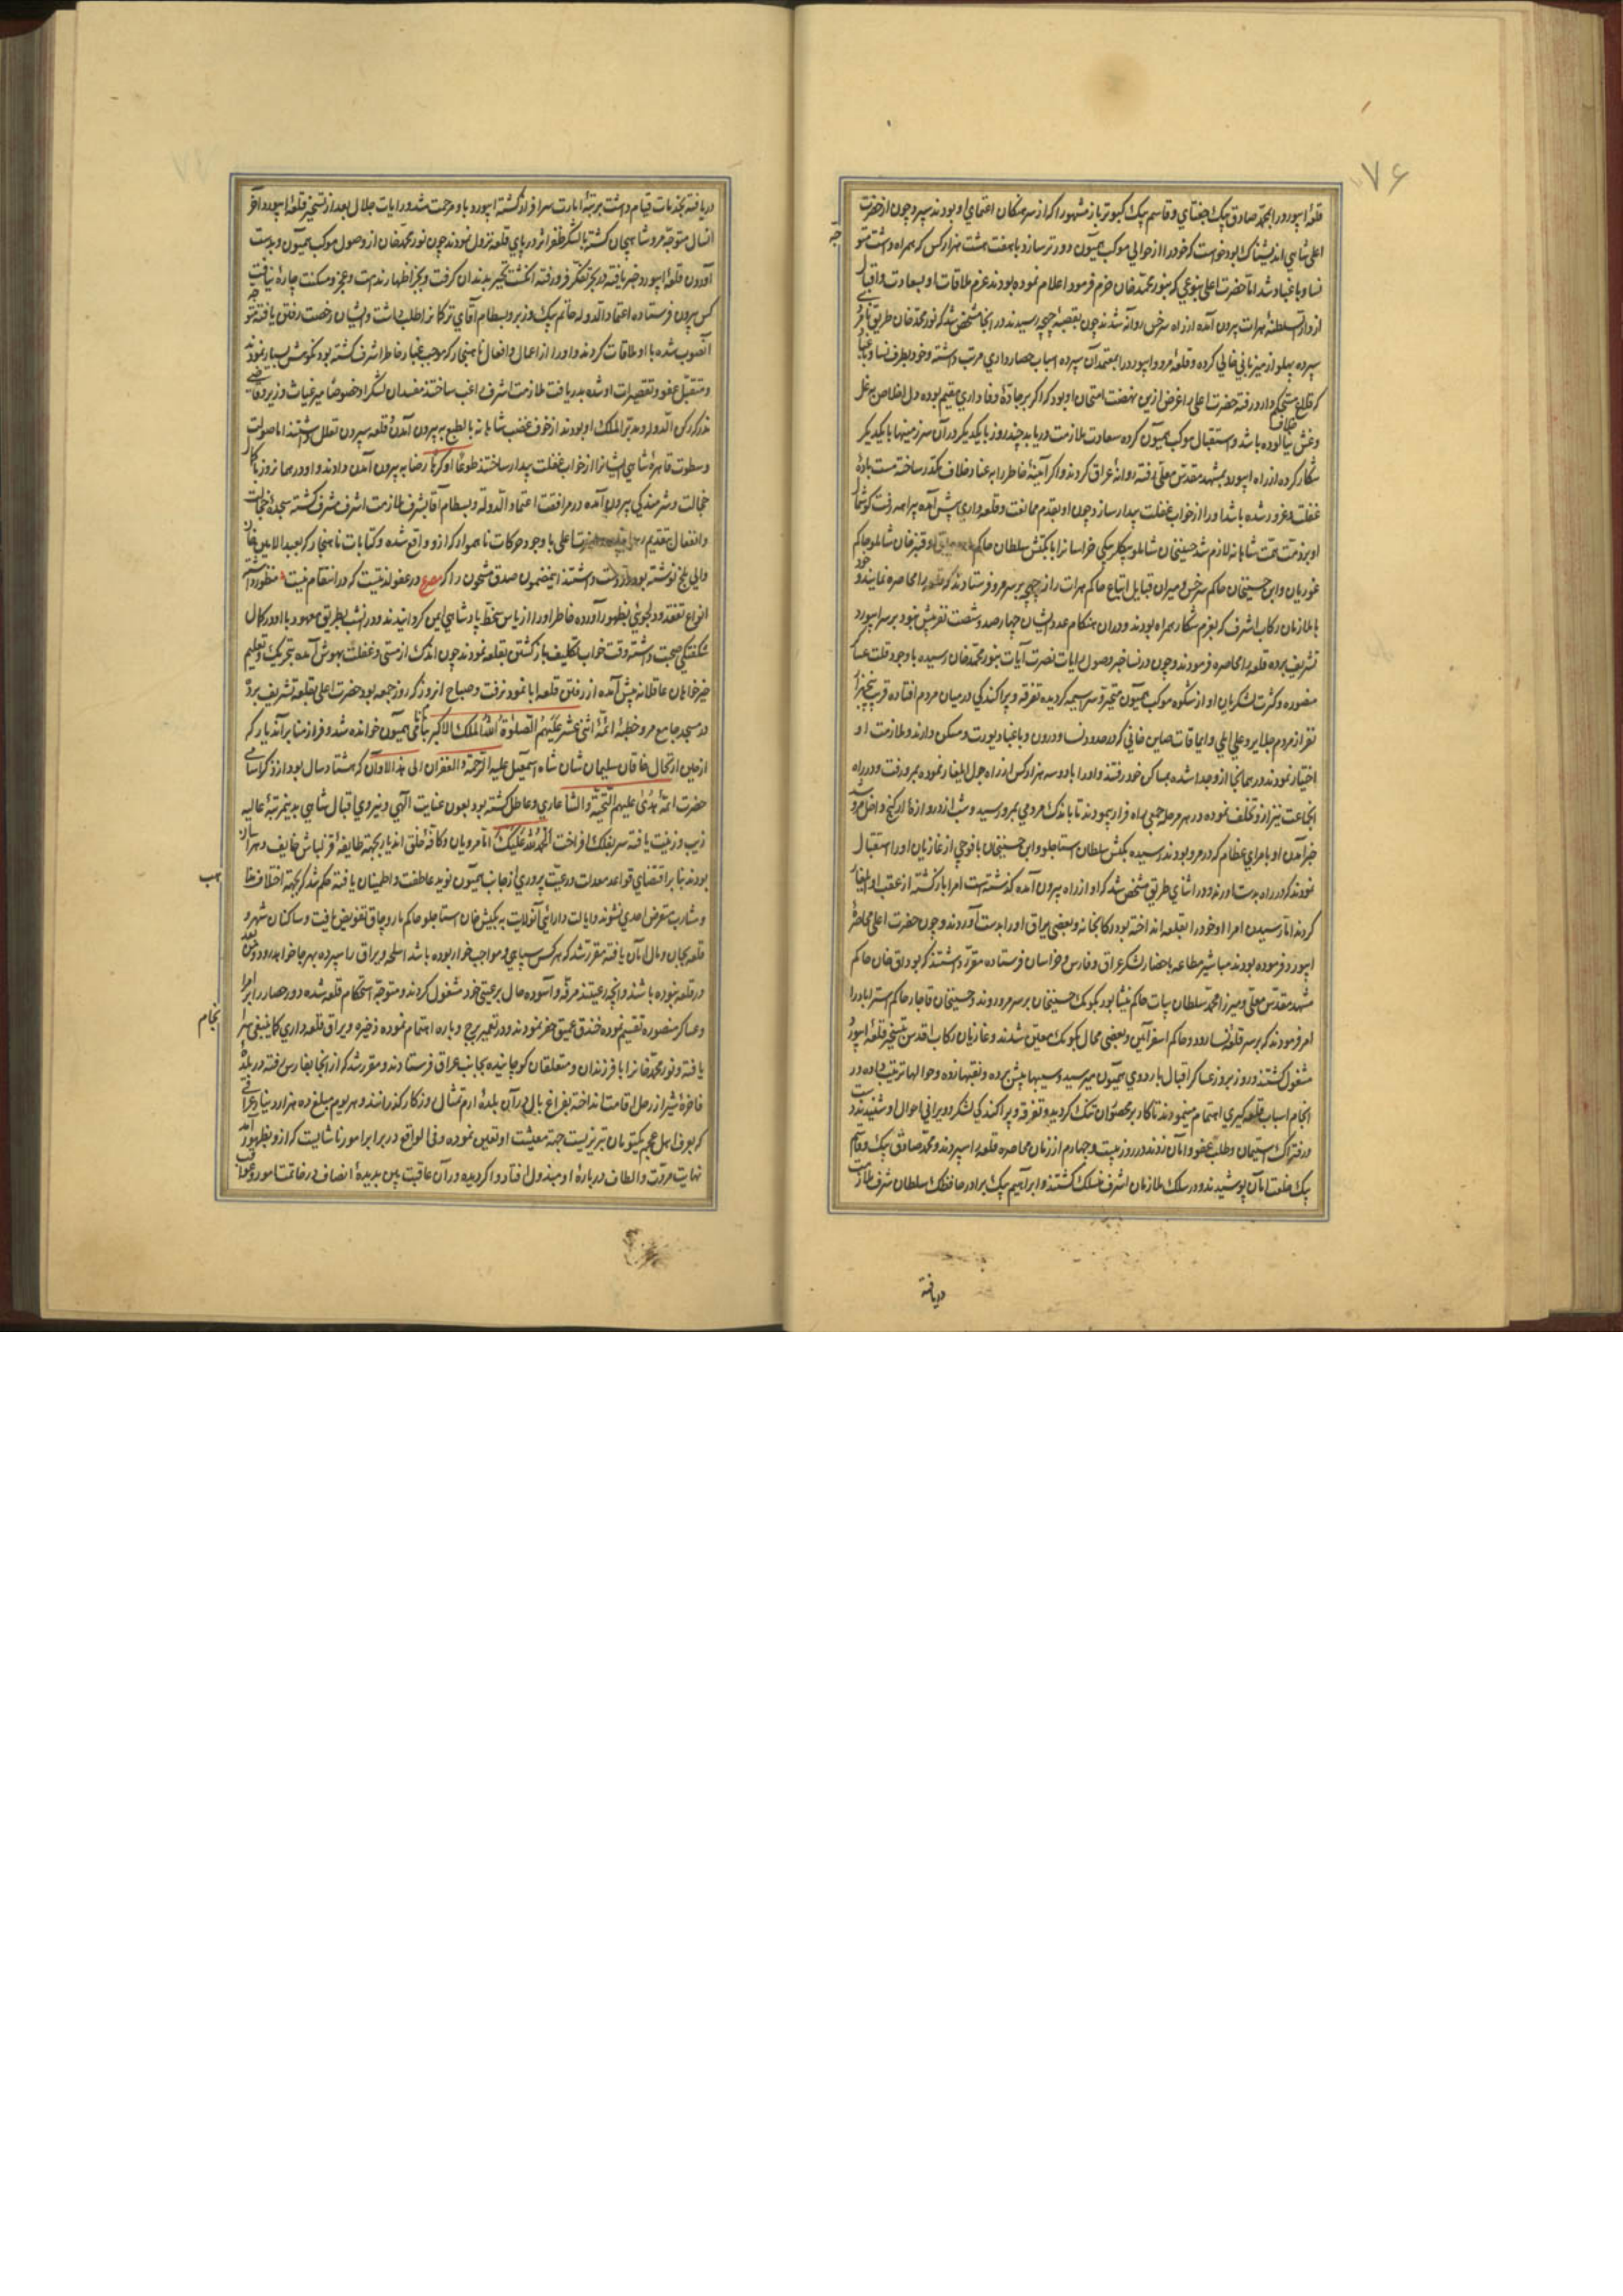 ۷۶
قلعهٔ ابیورد را بمحمد صادق بیک جغتای و قاسم بیک کبوترباز مشهور را که از سرهنکان اعتمادی او بودند سپرد و چون از حضرت
اعلی شاهی اندیشناک بود خواست که خود را از حوالی موکب همیون دورتر سازد با هفت هشت هزار کس که همراه داشت متو
جه
نسا و باغباد شد اما حضرت اعلی بنوعی که بنور محمد خان حزم فرمود اعلام نموده بودند عزم ملاقات او بسعادت و اقبال
از دار السلطنهٔ هرات بیرون آمده از راه سرخس روانه شدند چون بقصبهٔ چهچه رسیدند در انجا مشخص شد که نور محمد خان طریق
سپرده پهلو از میزبانی خالی کرده و قلعهٔ مرو و ابیورد را بمعتمدان سپرده اسباب حصارداری مرتب داشته و خود بطرف نسا و
که قلاع مستحکم دارد رفته حضرت اعلی را غرض ازین نهضت امتحان او بود که اگر بر جادهٔ وفاداری مقیم بوده دل اخلاص
و غش نیالوده باشد و استقبال موکب همیون کرده سعادت ملازمت دریابد چند روز با یکدیکر در آن سرزمینها با یکدیکر
شکار کرده از راه ابیورد بمشهد مقدس معلی رفته روانهٔ عراق کردند و اکر آیینهٔ خاطر را به غبار خلاف مکدر ساخته مست بادهٔ
غفلت و غرور شده باشد او را از خواب غفلت بیدار سازد چون او بقدم ممانعت و قلعه داری پیش آمده
او بر ذمت همت شاهانه لازم شد حسینخان شاملو بیکلربیکی خراسانرا با بکتش سلطان حاکم قنبر خان شاملو حاکم
غوریان و ابن حسینخان حاکم سرخس و میران قبایل اتباع حاکم هرات را از چهچه بر سر مرو فرستادند که قلعه را محاصره نمایند و خود
با ملازمان رکاب اشرف که بعزم شکار همراه بودند و در ان هنکام عدد ایشان چهار صد و شصت نفر بیش نبود بر سر ابیورد
تشریف برده قلعه را محاصره فرمودند و چون در نسا خبر وصول رایات نصرت آیات بنور محمد خان رسیده با وجود قلت عساکر
منصوره و کثرت لشکریان او از شکوه موکب همیون متحیر و سراسیمه کردیده تفرقه و پراکندکی در میان مردم افتاده قریب
نفر از مردم جلایر و علی ایلی و ایماقات صاین خانی که در حدود نسا و درون و باغباد یورت و مسکن دارند و ملازمت او
اختیار نمودند و در همانجا از و جدا شده بمساکن خود رفتند و او را با دو سه هزار کس از راه چول ایلغار نموده بمرو رفت و در راه
انجماعت نیز از و تخلف نموده در هر مرحله جمعی براه فرار پیمودند تا باندک مردمی بمرو رسید و شب از دروازهٔ داخل مرو شد
خبر آمدن او بامرای عظام که در مرو بودند رسیده بکتش سلطان استاجلو و ابن حسینخان با فوجی از غازیان او را استقبال
نمودند که در راه بدست اورند و در اثنای طریق مشخص شد که او از راه بیرون آمده گذشته است امرا بازکشته از عقب او ایلغار
کردند اما تا رسیدن امرا او خود را بقلعه انداخته بود رکابخانه و بعضی یراق او را بدست آوردند و چون حضرت اعلی محاصرهٔ
ابیورد فرموده بودند مناشیر مطاعه باحضار لشکر عراق و فارس و خراسان فرستاده مقرر داشتند که بوداق خان حاکم
مشهد مقدس معلی و میرزا محمد سلطان بیات حاکم نیشابور بکومک حسینخان بر سر مرو روند و حسینخان قاجار حاکم استراباد را
امر فرمودند که بر سر قلعهٔ نسا رود و حاکم اسفراین و بعضی محال بکومک معین شدند و غازیان رکاب اقدس بتسخیر قلعهٔ ابیورد
مشغول کشتند و روز بروز عساکر اقبال باردوی همیون میرسید و سیبها پیش برده و نقبها زده و حوالها ترتیب داده در
انجام اسباب قلعه کیری اهتمام مینمودند تا کار بر محصوران تنک کردید و تفرقه و پراکندکی لشکر و ویرانی احوال او شنیدند
در فتراک استیمان و طلب عفو و امان زدند در روز بیست و چهارم از زمان محاصره قلعه را سپردند و محمد صادق بیک و قاسم
بیک خلعت امان پوشیدند و در سلک ملازمان اشرف منسلک کشتند و ابراهیم بیک برادر حافظک سلطان شرف ملازمت
دریافته
دریافته بخدمات قیام داشت برتبهٔ امارت سرافراز کشته ابیورد باو مرحمت شد و رایات جلال بعد از تسخیر قلعهٔ ابیورد آخر
انسال متوجه مرو شاهیجان کشته با لشکر ظفر اثر در پای قلعه نزول نمودند چون نور محمد خان از وصول موکب همیون و بدست
آوردن قلعهٔ ابیورد خبر یافته در بحر تفکر فرو رفته انکشت تحیر بدندان گرفت و بجز اظهار ندامت و عجز و مسکنت چارهٔ نیافت
کس بیرون فرستاده اعتماد الدوله حاتم بیک وزیر و بسطام آقای ترکمانرا طلب داشت و ایشان رخصت رفتن یافته متوجه
انصوب شده با او ملاقات کردند و او را از اعمال و افعال ناهنجار که موجب غبار خاطر اشرف کشته بود نکوهش بسیار نمودند
و متقبل عفو و تقصیرات او شده بدریافت ملازمت اشرف راغب ساختند مفسدان لشکر او خصوصا میر غیاث وزیر و قاضی
نذر که رکن الدوله و مدبر الملک او بودند از خوف غضب شاهانه بالطبع به بیرون آمدن قلعه بیرون تعلل داشتند اما صولت
و سطوت قاهرهٔ شاهی ایشانرا از خواب غفلت بیدار ساخته طوعا او کرها رضا به بیرون آمدن دادند و او در همانروز با کمال
خجالت و شرمندکی بیرون آمده در مرافقت اعتماد الدوله و بسطام آقا بشرف ملازمت اشرف مشرف کشته سجدهٔ خجالت
و انفعال بتقدیم رسانید حضرت اعلی با وجود حرکات ناهموار که از و واقع شده و کتابات ناهنجار که بعبد الامین خان
والی بلخ نوشته بود در دولت داشتند اینمضمون صدق مشحون را که مصرع در عفو لذتیست که در انتقام نیست منظور داشته
انواع تفقد و دلجوئی بظهور آورده خاطر او را از یاس سخط پادشاهی ایمن کردانیدند و در انشب بطریق معهود با او در کمال
شکفتکی صحبت داشته وقت خواب تکلیف بازکشتن بقلعه نمودند چون اندک از مستی و غفلت بهوش آمده بتحریک و تعلیم
خیرخواهان عاقلانه پیش آمده از رفتن قلعه ابا نمود نرفت و صباح انروز که روز جمعه بود حضرت اعلی بقلعه تشریف برده
در مسجد جامع مرو خطبهٔ ائمهٔ اثنی عشر علیهم الصلوة الله الملک الاکبر بنام نامی همیون خوانده شد و فراز منابر آندیار که
از حین ارتحال خاقان سلیمان شان شاه اسمعیل علیه الرحمة و الغفران الی هذا الاوان که هشتاد سال بود از ذکر اسامی
حضرت ائمهٔ هدی علیهم التحیة و الثنا عاری و عاطل کشته بود بعون عنایت الهی و نیروی اقبال شاهی بدینمرتبهٔ عالیه
زیب و زینت یافته سر بفلک افراخت الحمد لله علی ذلک اما مرویان و کافهٔ خلق اندیار بجهة طایفهٔ قزلباش خایف و هراسان
بودند بنا بر اقتضای قواعد معدلت و رعیت پروری از جانب همیون نوید عاطفت و اطمینان یافته حکم شد که بجهة اختلاف
مذهب
و مشارب متعرض احدی نشوند و ایالت و دارائی آنولایت به بکتش خان استاجلو حاکم ماروچاق تفویض یافت و ساکنان شهر و
قلعه بجان و مال امان یافته مقرر شد که هر کس سپاهی و مواجب خوار بوده باشد اسلحه و یراق را سپرده بهر جا خواهد رود و من بعد
در قلعه نبوده باشند و انچه رعیتند مرفه و آسوده حال برعیتی خود مشغول کردند و متوجه استحکام قلعه شده دور حصار را بر امرا
و عساکر منصوره تقسیم نموده خندق عمیق حفر نمودند و در تعمیر برج و باره اهتمام نموده ذخیره و یراق قلعه داری کما ینبغی سر
انجام
یافته و نور محمد خانرا با فرزندان و متعلقان کوچانیده بجانب عراق فرستادند و مقرر شد که از انجا بفارس رفته در بلدهٔ
فاخرهٔ شیراز رحل اقامت انداخته بفراغ بال در آن بلدهٔ ارم تمثال روزکار گذرانند و هر یوم مبلغ ده هزار دینار عراقی
که بعرف اهل عجم یکتومان تبریزیست جهة معیشت او تعین نموده و فی الواقع در برابر امور ناشایست که از و بظهور آمد
نهایت مروت و الطاف در بارهٔ او مبذول افتاد و اکر دیده در آن عاقبت بین بدیدهٔ انصاف در خاتمت امور و عواقب